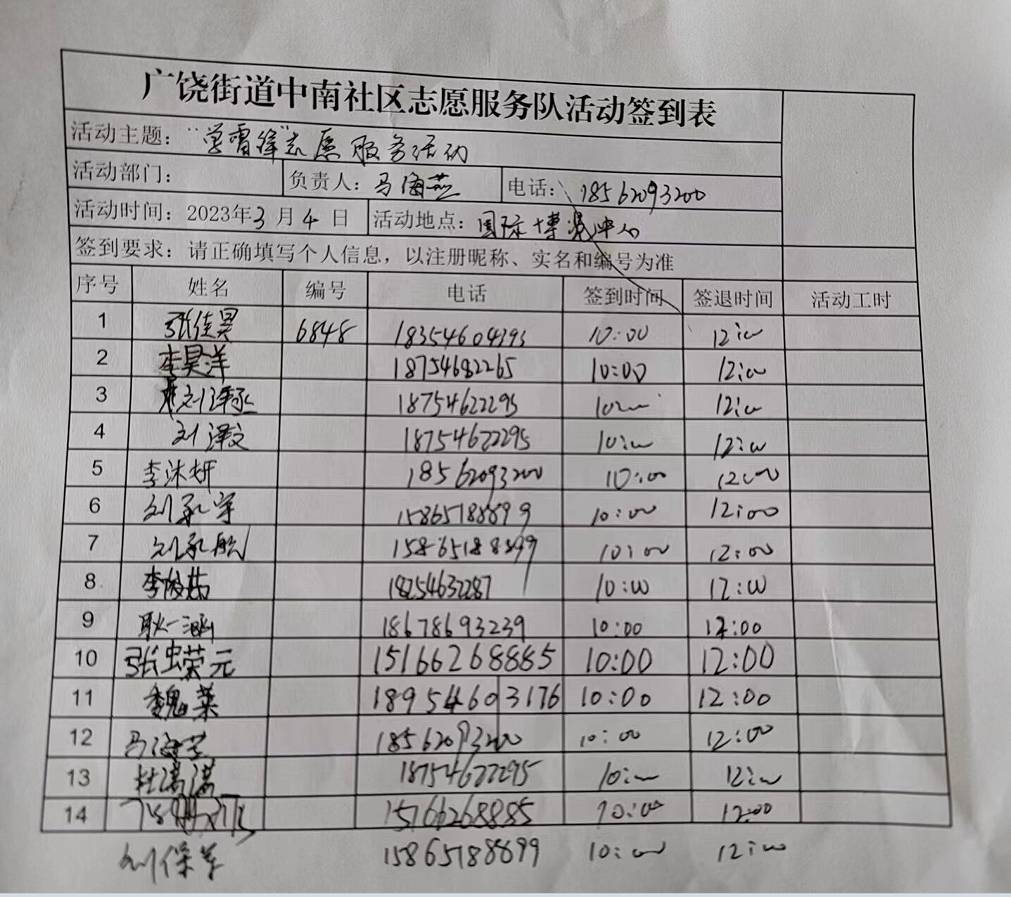 广饶街道中南社区志愿服务队活动签到表
活动主题：“学雷锋”志愿服务活动
活动部门： 负责人：马海燕 电话：18562093200
活动时间：2023年3月4日 活动地点：国际博览中心
签到要求：请正确填写个人信息，以注册昵称、实名和编号为准
序号 姓名 编号 电话 签到时间 签退时间 活动工时
1 张佳昊 6848 18354604393 10:00 12:00
2 李昊洋 18754682265 10:00 12:00
3 刘泽丞 18754622295 10:00 12:00
4 刘泽文 18754622295 10:00 12:00
5 李沐妍 18562093200 10:00 12:00
6 刘承宇 15865188899 10:00 12:00
7 刘承航 15865188899 10:00 12:00
8 李俊茹 18254632287 10:00 12:00
9 耿一涵 18678693239 10:00 12:00
10 张虫荣元 15166268885 10:00 12:00
11 魏荣 18954603176 10:00 12:00
12 马海 18562093200 10:00 12:00
13 杜满满 18754622295 10:00 12:00
14 15166268885 10:00 12:00
刘保 15865188899 10:00 12:00